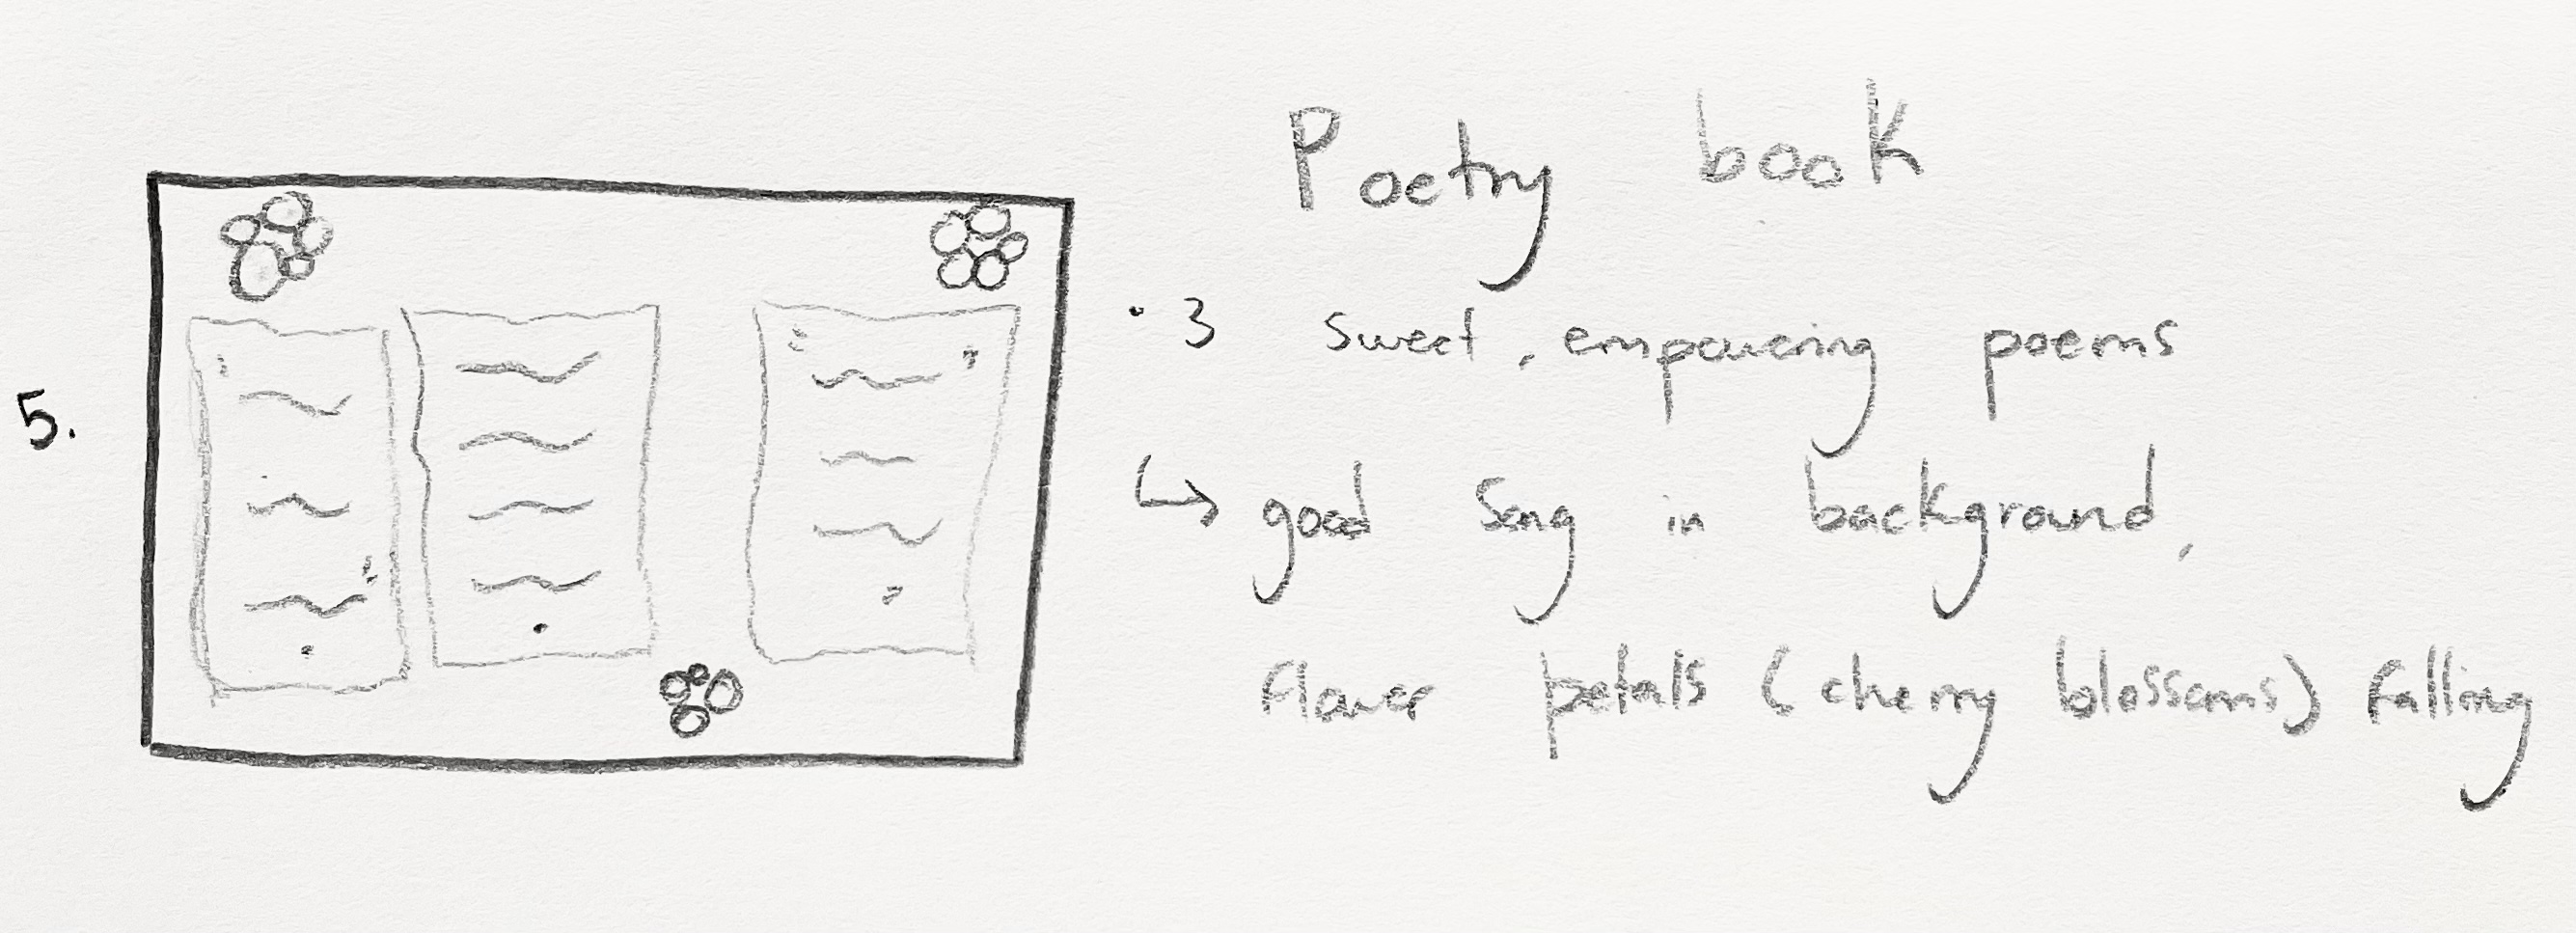 5.
Poetry book
· 3 sweet, empowering poems
↳ good song in background,
flower petals (cherry blossoms) falling